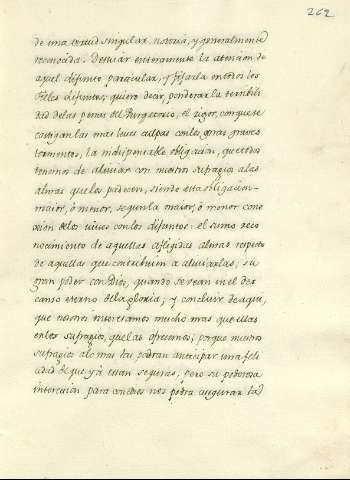 262
de una virtud singular, notoria, y generalmente
reconocida. Desviar enteramente la atencion de
aquel difunto particular, y fijarla en todos los
fieles difuntos; quiero decir, ponderar la terribili
dad de las penas del Purgatorio, el rigor, con que se
castigan las mas leves culpas con los mas graves
tormentos, la indispensable obligacion, que todos
tenemos de aliviar con nuestros sufragios a las
almas que los padecen, siendo esta obligacion
maior, ò menor, segun la maior, ò menor cone
xion de los vivos con los difuntos: el sumo reco
nocimiento de aquellas afligidas almas respecto
de aquellas que contribuien a aliviarlas, su
gran poder con Dios, quando se vean en el des
canso eterno de la gloria; y concluir de aqui,
que nosotros interesamos mucho mas que ellas
en los sufragios, que las ofrecemos; porque nuestros
sufragios alo mas las podran anticipar una feli
cidad de que yà estan seguras; pero su poderosa
intercesion para con Dios nos podra asegurar la